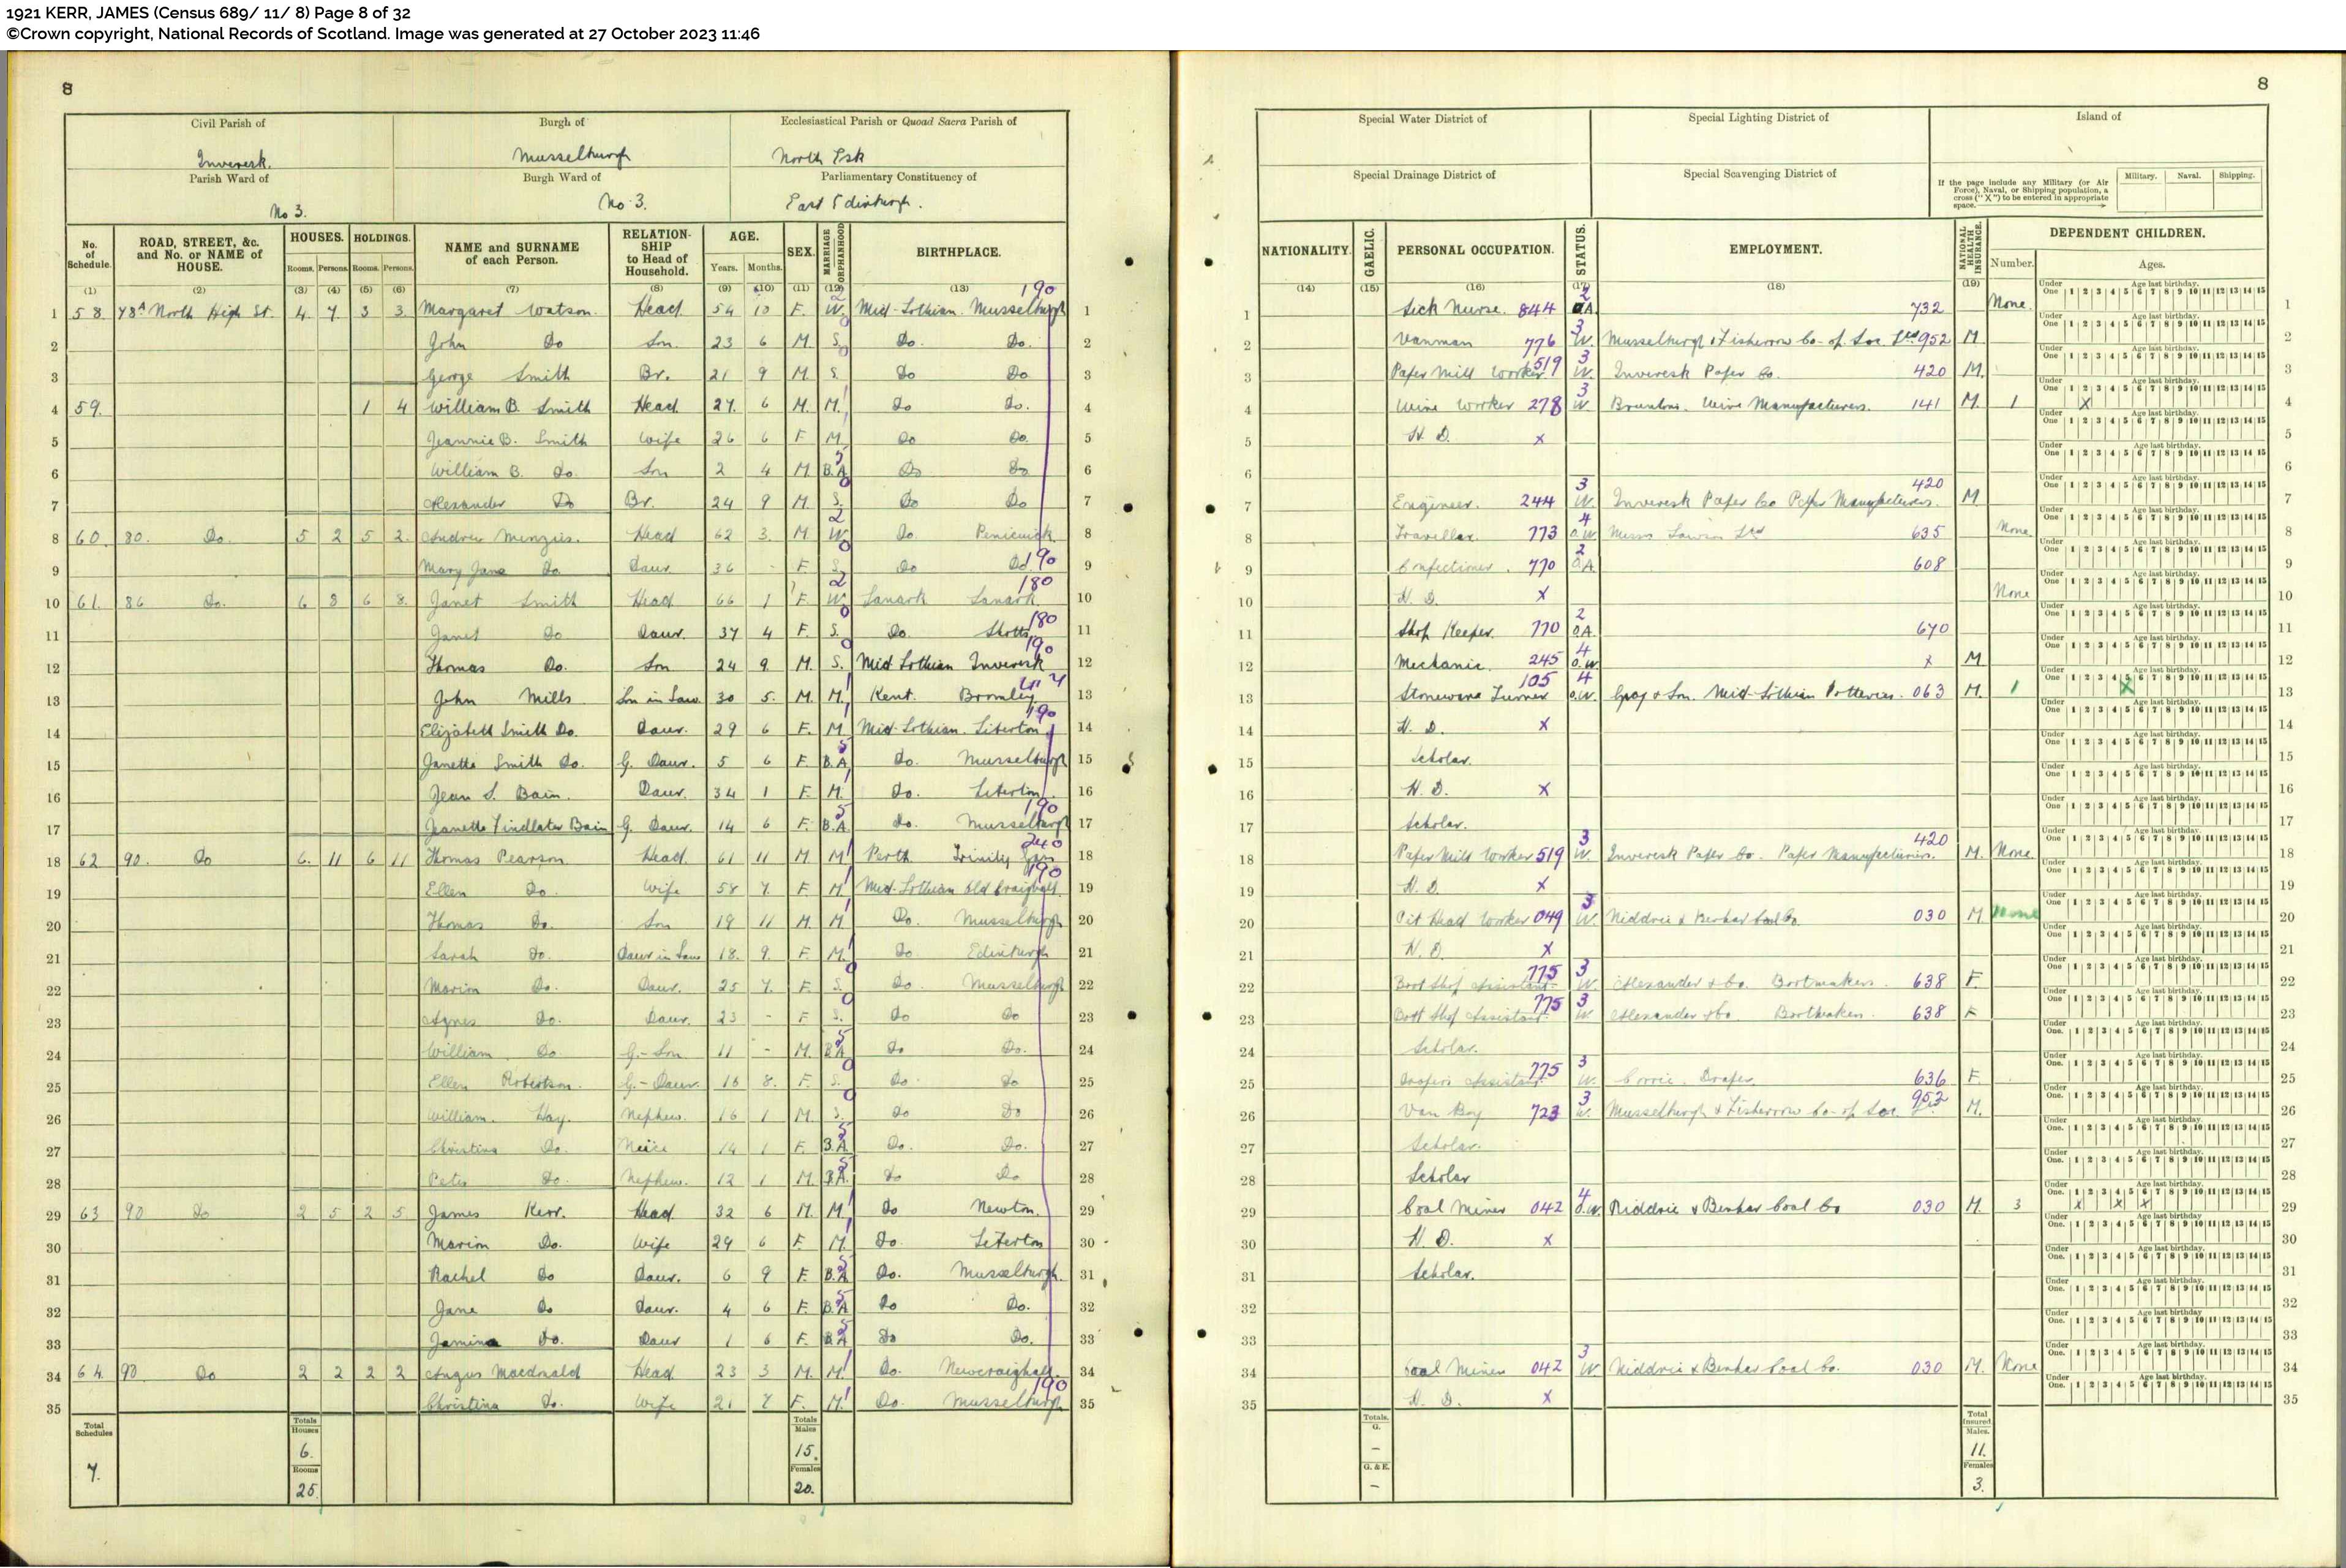 1921 KERR, JAMES (Census 689/ 11/ 8) Page 8 of 32
©Crown copyright, National Records of Scotland. Image was generated at 27 October 2023 11:46
8
Civil Parish of Burgh of Ecclesiastical Parish or Quoad Sacra Parish of
Inveresk. Musselburgh North Esk
Parish Ward of Burgh Ward of Parliamentary Constituency of
No 3. No 3. East Edinburgh.
No. of Schedule. ROAD, STREET, &c. and No. or NAME of HOUSE. HOUSES. HOLDINGS. NAME and SURNAME of each Person. RELATIONSHIP to Head of Household. AGE. SEX. MARRIAGE or ORPHANHOOD BIRTHPLACE.
Rooms. Persons. Rooms. Persons. Years. Months.
(1) (2) (3) (4) (5) (6) (7) (8) (9) (10) (11) (12) (13)
1 58 78A North High St. 4 7 3 3 Margaret Watson. Head 54 10 F. W. Mid-Lothian. Musselburgh 190 1
2 John Do Son 23 6 M. S. Do. Do. 2
3 George Smith Br. 21 9 M S. Do Do 3
4 59. 1 4 William B. Smith Head 27. 6 M. M. Do Do. 4
5 Jeannie B. Smith Wife 26 6 F M. Do Do. 5
6 William B. Do. Son 2 4 M B.A. Do Do 6
7 Alexander Do Br. 24 9 M. S. Do Do 7
8 60. 80. Do. 5 2 5 2. Andrew Menzies. Head 62 3. M. W Do Penicuick 8
9 Mary Jane Do Daur. 36 - F. S. Do Do 190 9
10 61. 86 Do. 6 8 6 8. Janet Smith Head 66 1 F. W. Lanark Lanark. 180 10
11 Janet Do Daur. 37 4 F. S. Do. Shotts 180 11
12 Thomas Do. Son 24 9. M. S. Mid Lothian Inveresk 190 12
13 John Mills Son in Law. 30 5. M. M. Kent. Bromley 13
14 Elizabeth Smith Do. Daur. 29 6 F. M. Mid-Lothian. Liberton 190 14
15 Janetta Smith Do. G. Daur. 5 6 F B.A Do. Musselburgh 15
16 Jean S. Bain. Daur. 34 1 F. M. Do. Liberton. 16
17 Jeanette Findlater Bain G. Daur. 14 6 F. B.A. Do. Musselburgh 190 17
18 62 90. Do 6. 11 6 11 Thomas Pearson Head. 61 11 M M Perth Trinity Gask 240 18
19 Ellen Do. Wife 58 7. F M. Mid-Lothian Old Craighall 190 19
20 Thomas Do. Son 19 11 M M Do. Musselburgh 20
21 Sarah Do. Daur in Law 18. 9. F. M. Do Edinburgh 21
22 Marion Do. Daur. 25 7. F. S. Do. Musselburgh 22
23 Agnes Do. Daur. 23 - F S. Do Do 23
24 William Do. G.-Son 11 - M. B.A Do Do. 24
25 Ellen Robertson. G.-Daur. 16 8. F. S. Do. Do 25
26 William. Hay. Nephew. 16 1 M S. Do Do 26
27 Christina Do. Neice 14 1 F B.A Do. Do. 27
28 Peter Do. Nephew. 12 1 M B.A. Do Do 28
29 63 90 Do 2 5 2 5 James Kerr. Head 32 6 M. M Do Newton. 29
30 Marion Do. Wife 29 6 F. M. Do. Liberton 30
31 Rachel Do Daur. 6 9 F B.A Do. Musselburgh. 31
32 Jane Do Daur. 4 6 F. B.A Do Do. 32
33 Jamina Do. Daur 1 6 F. B.A Do Do. 33
34 64. 90 Do 2 2 2 2 Angus Macdonald Head 23 3 M. M. Do. Newcraighall. 34
35 Christina Do. Wife 21 7 F. M. Do. Musselburgh 190 35
Total Schedules 7. Totals Houses 6. Rooms 25. Totals Males 15. Females 20.
8
Special Water District of Special Lighting District of Island of
Special Drainage District of Special Scavenging District of
If the page include any Military (or Air Force), Naval, or Shipping population, a cross ("X") to be entered in appropriate space. Military. Naval. Shipping.
NATIONALITY. GAELIC. PERSONAL OCCUPATION. STATUS. EMPLOYMENT. NATIONAL HEALTH INSURANCE. DEPENDENT CHILDREN.
Number. Ages.
(14) (15) (16) (17) (18) (19)
Under One 1 2 3 4 5 6 7 8 9 10 11 12 13 14 15 Age last birthday.
1 Sick Nurse. 844 O.A. 732 None. 1
2 Vanman 776 W. Musselburgh & Fisherrow Co-op. Soc Ltd 952 M 2
3 Paper Mill Worker 519 W. Inveresk Paper Co. 420 M. 3
4 Wire Worker 278 W. Bruntons. Wire Manufacturers. 141 M. 1 X 4
5 H. D. X 5
6 6
7 Engineer. 244 W. Inveresk Paper Co Paper Manufacturers. 420 M 7
8 Traveller. 773 O.W 635 None 8
9 Confectioner. 770 O.A. 608 9
10 H. D. X None 10
11 Shop Keeper. 770 O.A. 670 11
12 Mechanic. 245 O.W. X M 12
13 Stoneware Turner 105 O.W. Gray & Son. Mid-Lothian Potteries. 063 M. 1 X 13
14 H. D. X 14
15 Scholar. 15
16 H. D. X 16
17 Scholar. 17
18 Paper Mill Worker 519 W. Inveresk Paper Co. Paper Manufacturers. 420 M. None 18
19 H. D. X 19
20 Pit Head Worker 049 W. Niddrie & Benhar Coal Co. 030 M None 20
21 H. D. X 21
22 Boot Shop Assistant. 775 W. Alexander & Co. Bootmakers. 638 F. 22
23 Boot Shop Assistant. 775 W Alexander & Co. Bootmakers. 638 F 23
24 Scholar. 24
25 Drapers Assistant. 775 W. Corrie. Draper. 636 F. 25
26 Van Boy 723 W. Musselburgh & Fisherrow Co-op. Soc 952 M. 26
27 Scholar. 27
28 Scholar 28
29 Coal Miner 042 O.W. Niddrie & Benhar Coal Co 030 M. 3 X X X 29
30 H. D. X 30
31 Scholar. 31
32 32
33 33
34 Coal Miner 042 W Niddrie & Benhar Coal Co. 030 M. None 34
35 H. D. X 35
Totals. G. - G. & E. - Total Insured. Males. 11. Females 3.